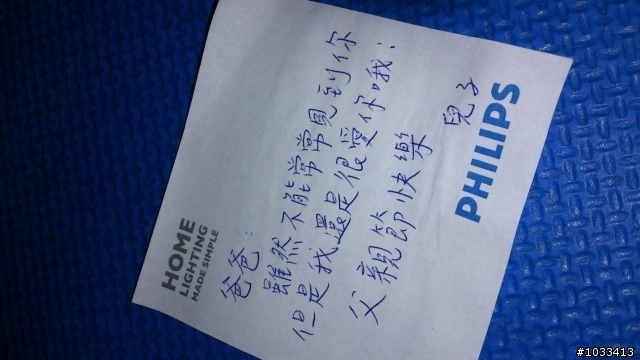 HOME
LIGHTING
MADE SIMPLE
爸爸：
雖然不能常常見到你
但是我還是很愛你哦！
父親節即快樂
兒子
PHILIPS
#1033413